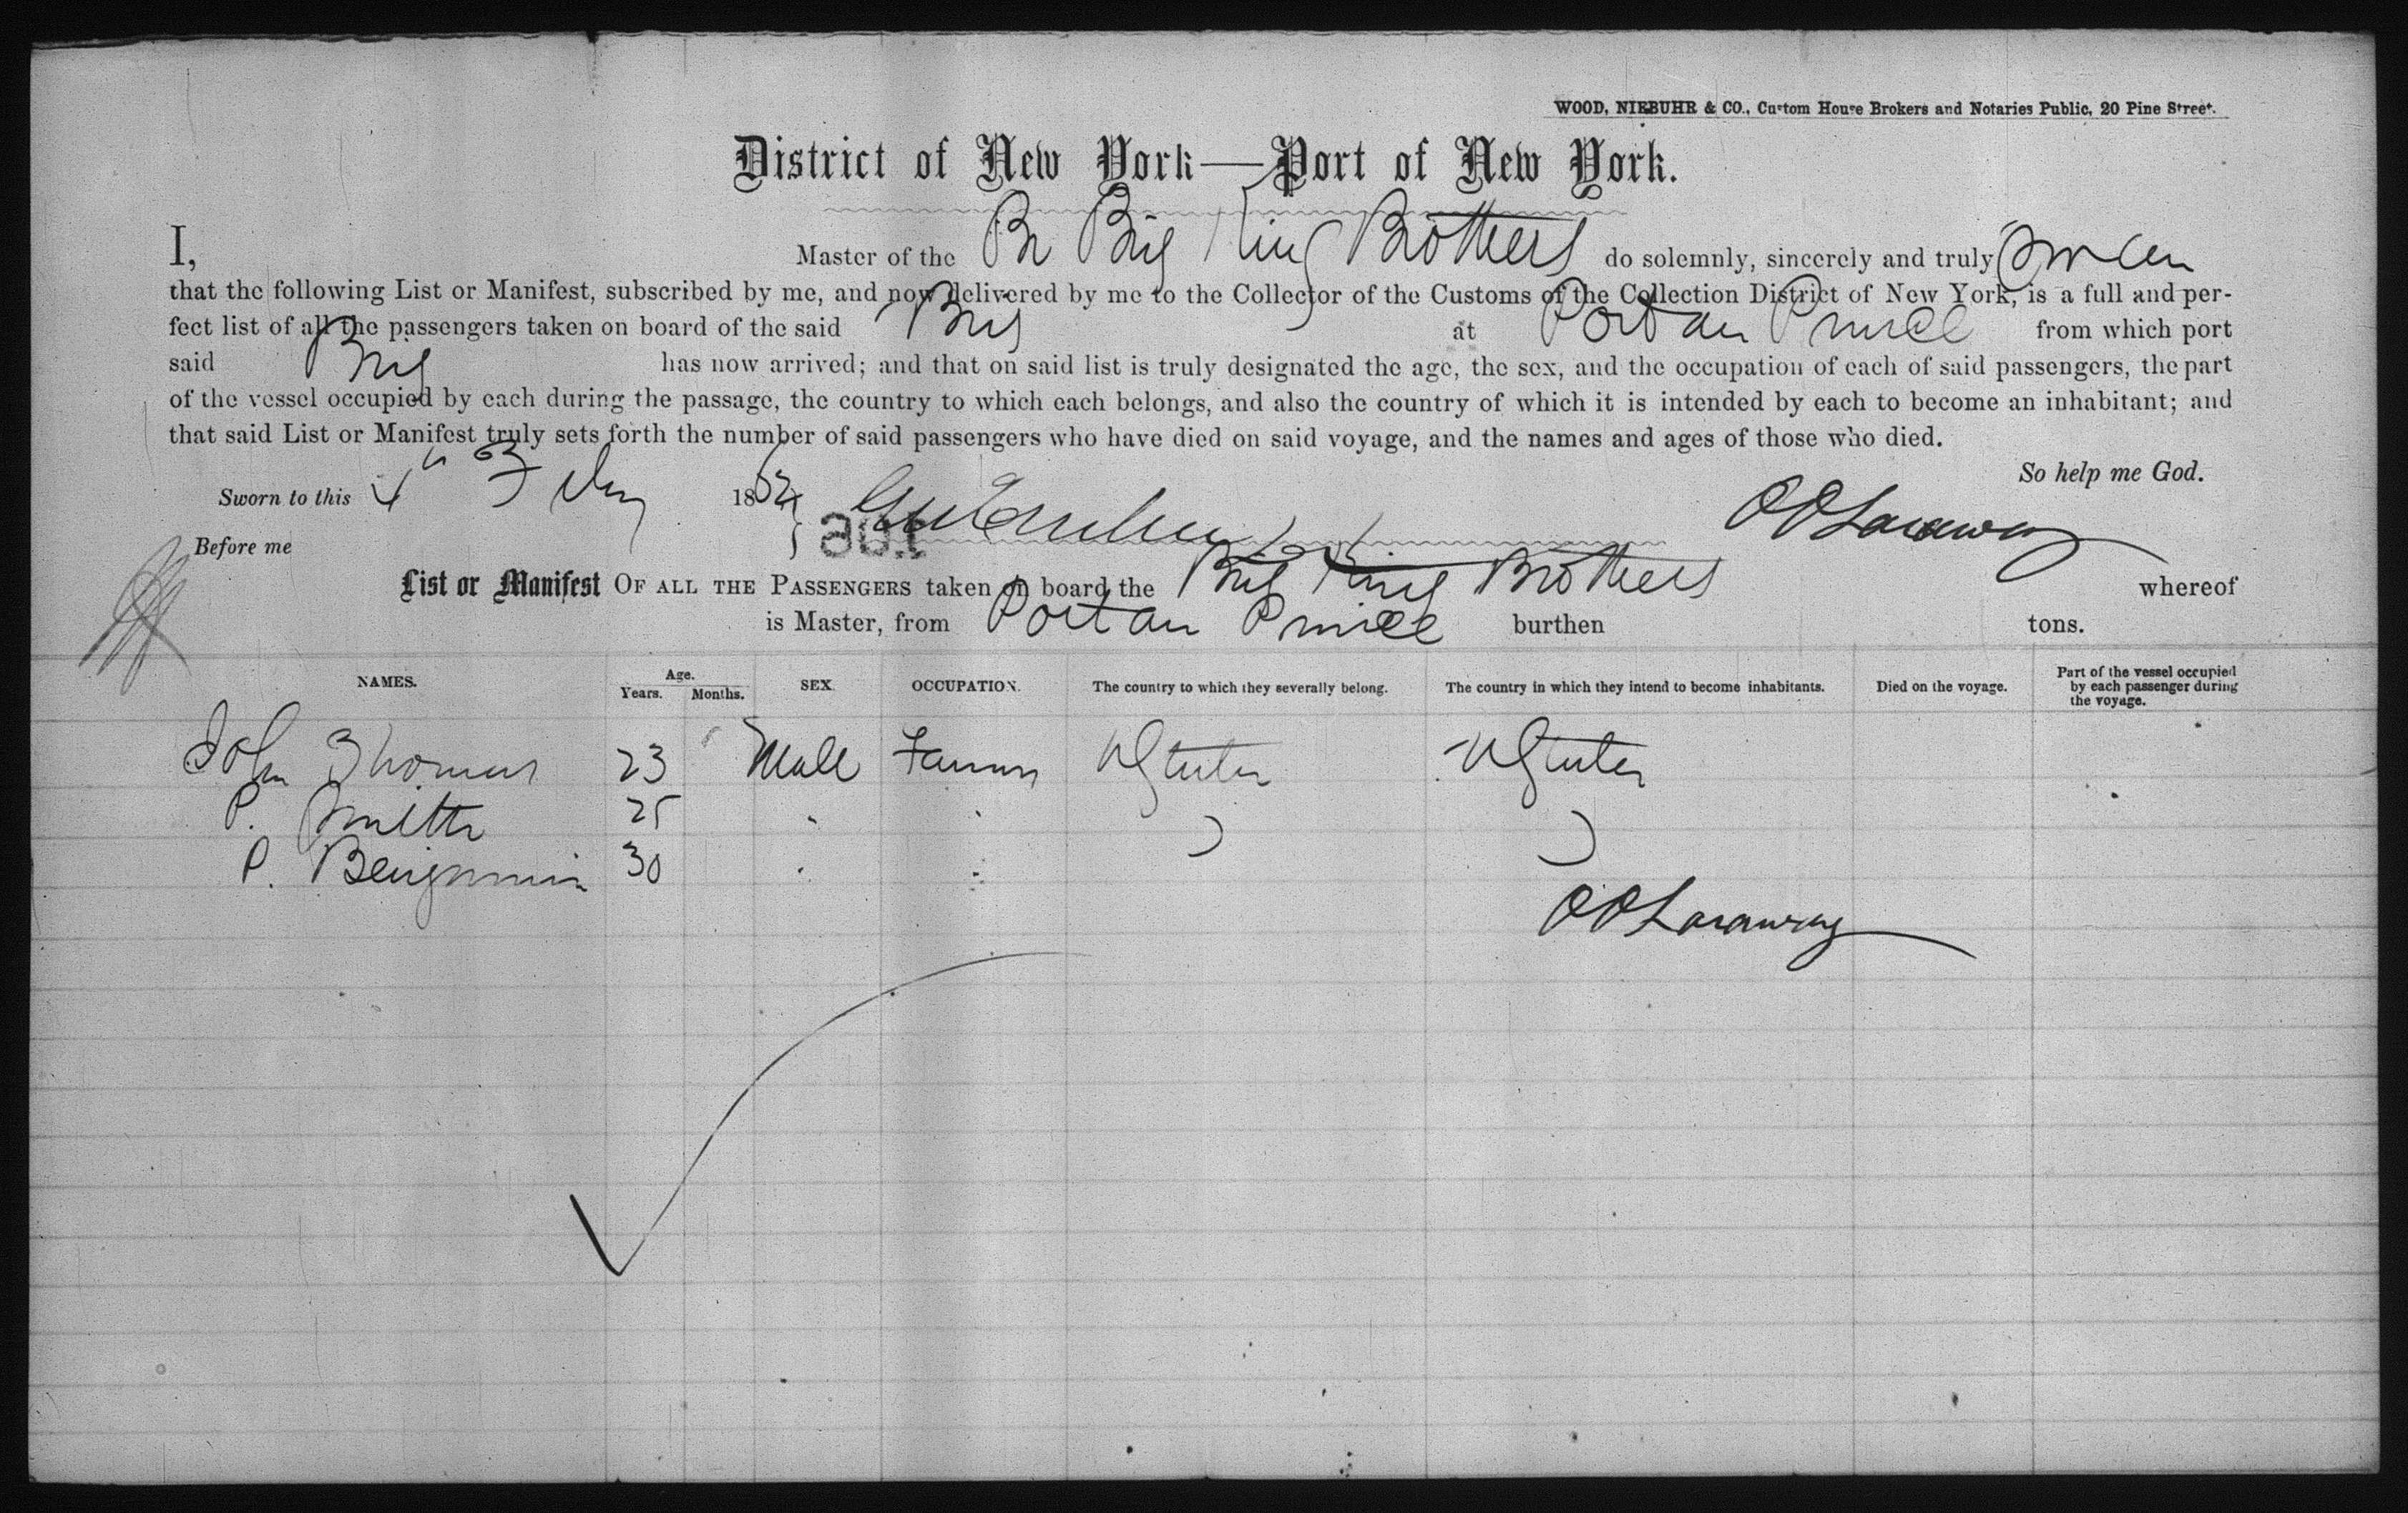 WOOD, NIEBUHR & CO., Custom House Brokers and Notaries Public, 20 Pine Street.
District of New York—Port of New York.
I, Master of the Br Brig King Brothers do solemnly, sincerely and truly swear
that the following List or Manifest, subscribed by me, and now delivered by me to the Collector of the Customs of the Collection District of New York, is a full and per-
fect list of all the passengers taken on board of the said Brig at Port au Prince from which port
said Brig has now arrived; and that on said list is truly designated the age, the sex, and the occupation of each of said passengers, the part
of the vessel occupied by each during the passage, the country to which each belongs, and also the country of which it is intended by each to become an inhabitant; and
that said List or Manifest truly sets forth the number of said passengers who have died on said voyage, and the names and ages of those who died.
So help me God.
Sworn to this 4th 18
Before me
List or Manifest OF ALL THE PASSENGERS taken on board the Brig King Brothers whereof
is Master, from Port au Prince burthen tons.
NAMES. Age. Years. Months. SEX. OCCUPATION. The country to which they severally belong. The country in which they intend to become inhabitants. Died on the voyage. Part of the vessel occupied by each passenger during the voyage.
John Thomas 23 Male Farmer U States U States
P. Smith 25
P. Benjamin 30